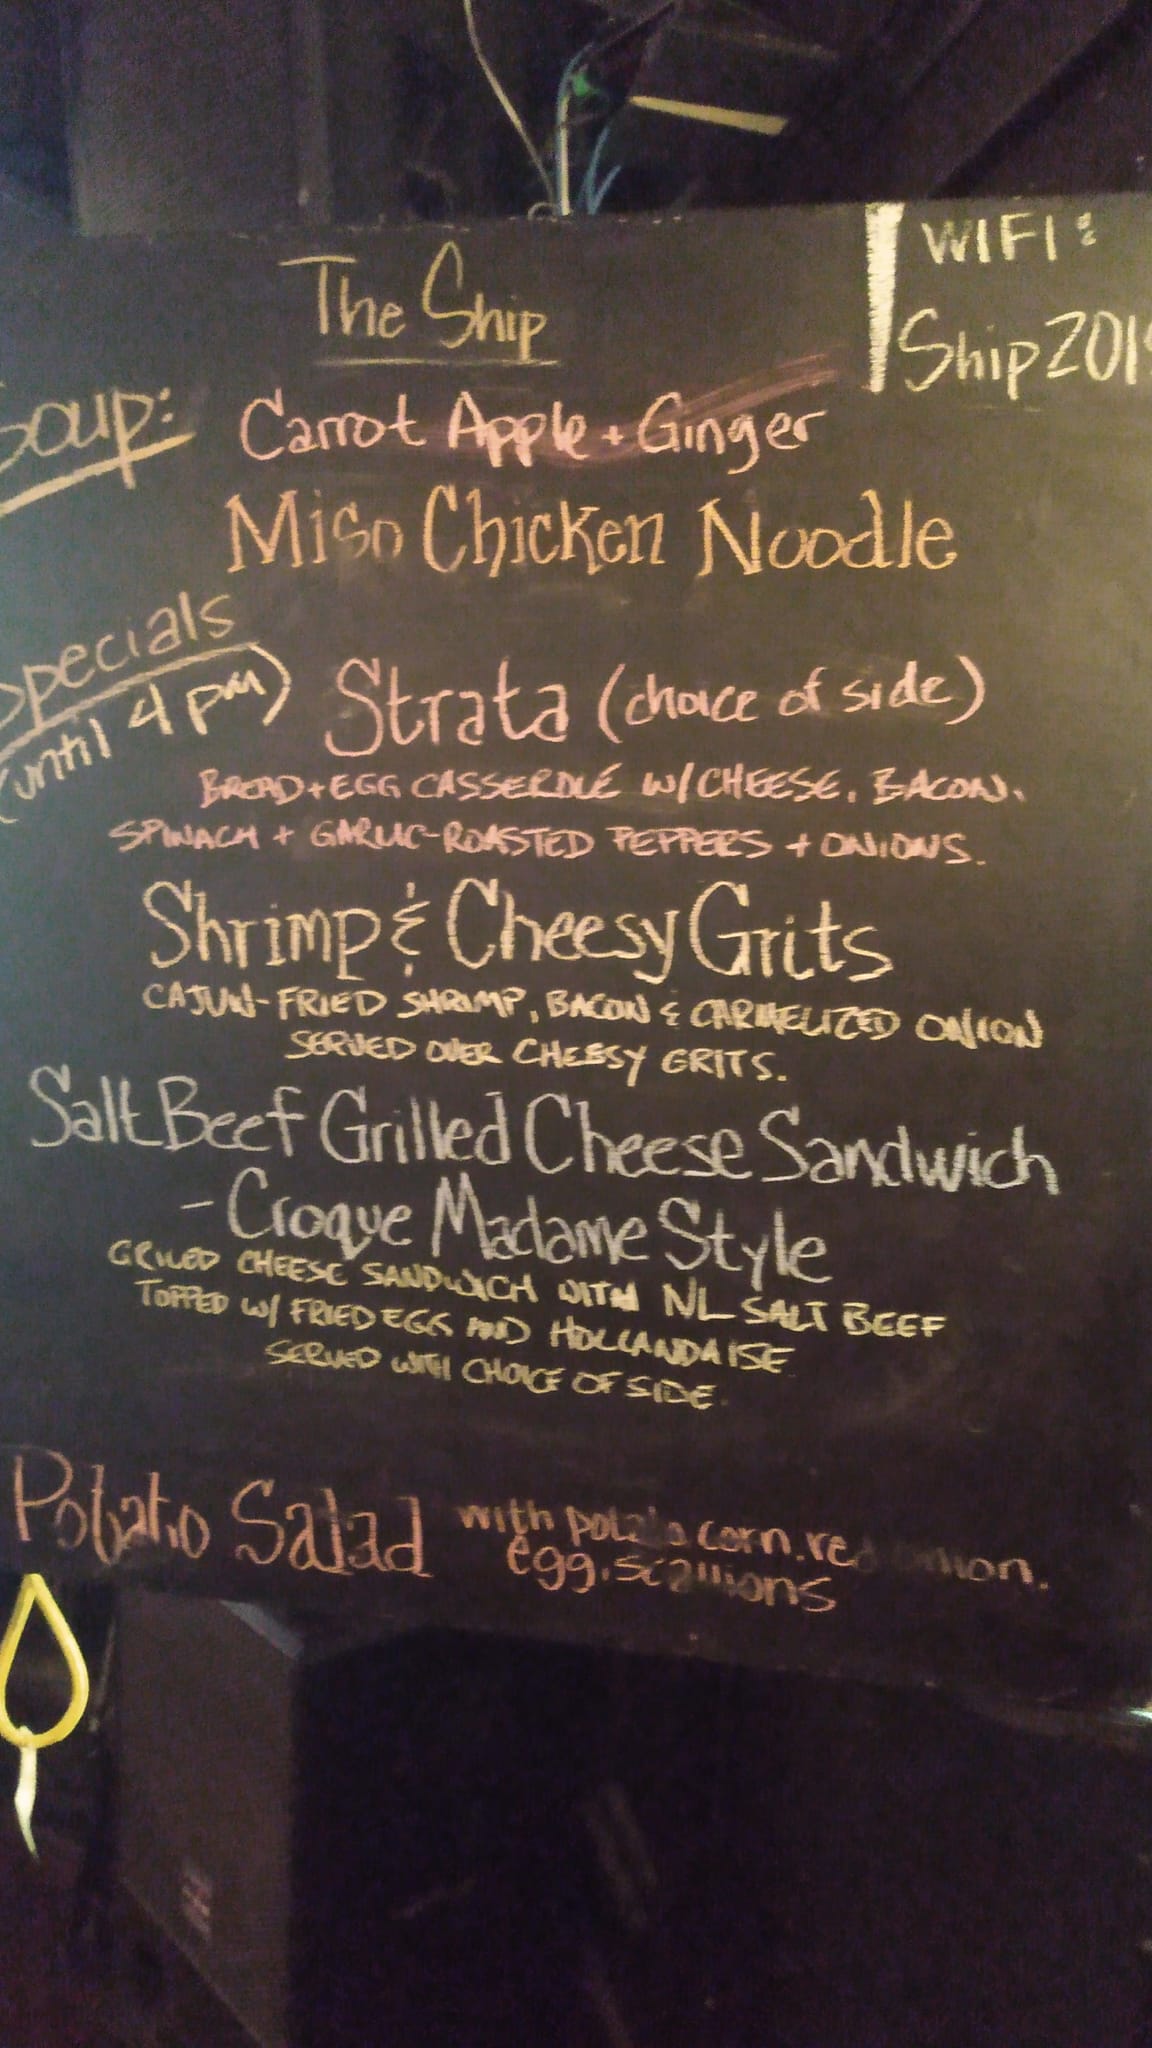 The Ship
WIFI:
Soup:
Carrot Apple + Ginger
Miso Chicken Noodle
Specials
(until 4 pm)
Strata (choice of side)
BREAD + EGG CASSEROLE W/ CHEESE, BACON,
SPINACH + GARLIC-ROASTED PEPPERS + ONIONS.
Shrimp & Cheesy Grits
CAJUN-FRIED SHRIMP, BACON & CARMELIZED ONION
SERVED OVER CHEESY GRITS.
Salt Beef Grilled Cheese Sandwich
- Croque Madame Style
GRILLED CHEESE SANDWICH WITH NL SALT BEEF
TOPPED W/ FRIED EGG AND HOLLANDAISE
SERVED WITH CHOICE OF SIDE.
Potato Salad with potato. corn. red onion.
egg. scallions